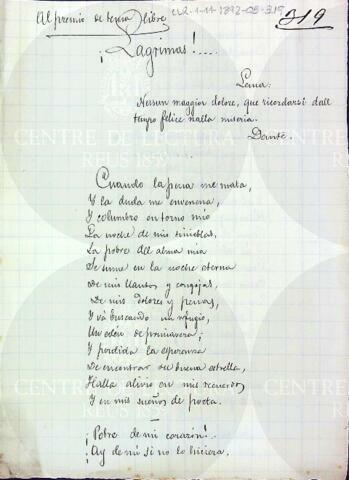 Al premio de tema libre
CL2-1-11-1892-05-319
319
¡Lagrimas!....
Lema:
Nessun maggior dolore, que ricordarsi dell
tempo felice nella miseria.
Dante.
CENTRE DE LECTURA
REUS 1859
Cuando la pena me mata,
Y la duda me envenena,
Y columbro en torno mio
La noche de mis tinieblas,
La pobre del alma mia
Se sume en la noche eterna
De mis llantos y congojas,
De mis dolores y penas,
Y vá buscando un refugio,
Un edén de primavera;
Y perdida la esperanza
De encontrar su buena estrella,
Halla alivio en mis recuerdos
Y en mis sueños de poeta.
¡Pobre de mi corazón!
¡Ay de mi si no lo hiciera.